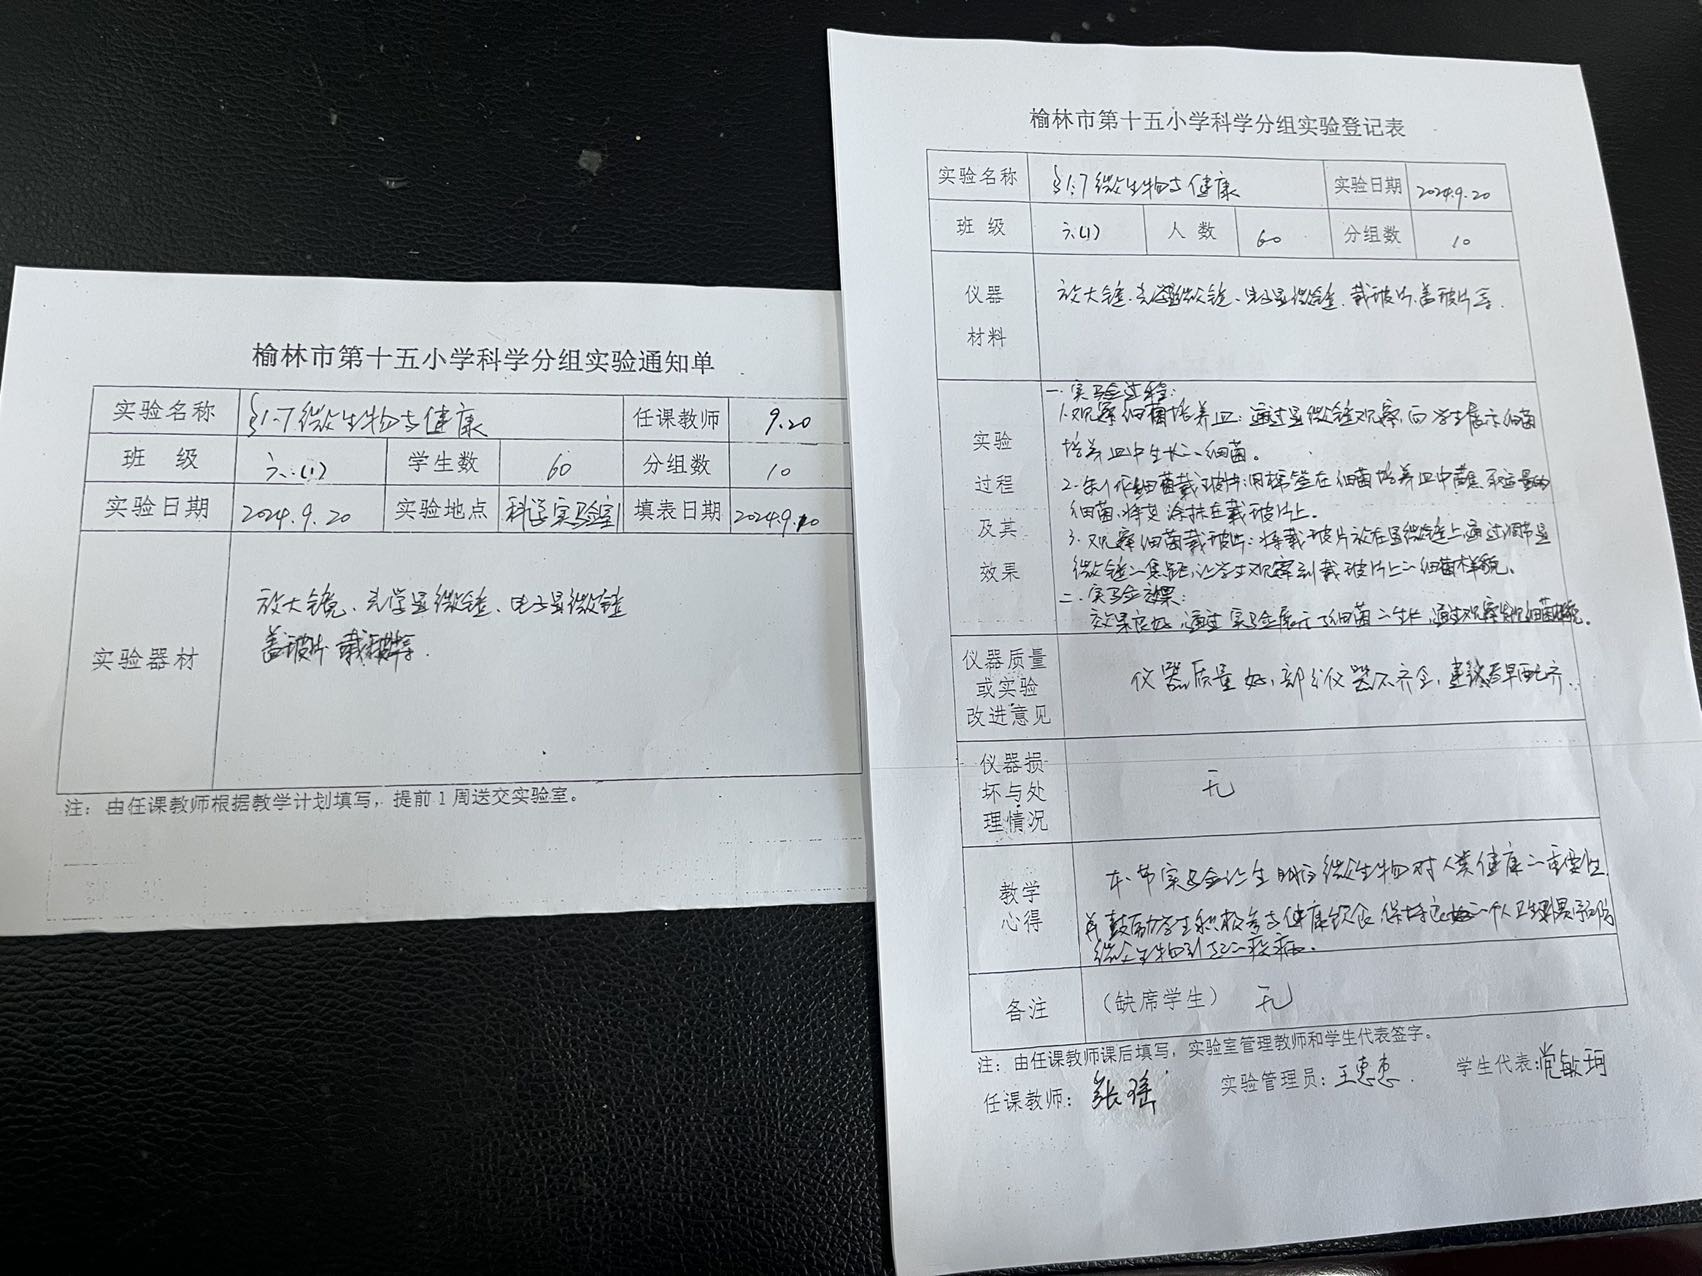 榆林市第十五小学科学分组实验通知单
实验名称 §1.7微生物与健康 任课教师 9.20
班 级 六(1) 学生数 60 分组数 10
实验日期 2024.9.20 实验地点 科学实验室 填表日期 2024.9.10
实验器材
放大镜、光学显微镜、电子显微镜
盖玻片 载玻片等.
注：由任课教师根据教学计划填写，提前1周送交实验室。
榆林市第十五小学科学分组实验登记表
实验名称 §1.7微生物与健康 实验日期 2024.9.20
班 级 六(1) 人 数 60 分组数 10
仪器
材料
放大镜、光学显微镜、电子显微镜、载玻片、盖玻片等.
实验
过程
及其
效果
一.实验过程:
1.观察细菌培养皿:通过显微镜观察,向学生展示细菌
培养皿中生长的细菌。
2.制作细菌载玻片:用棉签在细菌培养皿中蘸取适量的
细菌,将其涂抹在载玻片上。
3.观察细菌载玻片:将载玻片放在显微镜上,通过调节显
微镜的焦距,让学生观察到载玻片上的细菌样貌。
二.实验效果:
效果良好,通过实验展示了细菌的生长,通过观察 细菌样貌。
仪器质量
或实验
改进意见
仪器质量好,部分仪器不齐全,建议尽早配齐.
仪器损
坏与处
理情况
无
教学
心得
本节实验让学生明白微生物对人类健康的重要性,
并鼓励学生积极参与健康饮食 保持良好的个人卫生习惯预防
微生物引起的疾病.
备注 （缺席学生） 无
注：由任课教师课后填写，实验室管理教师和学生代表签字。
任课教师：张瑶 实验管理员：王惠惠 学生代表：党敏珂